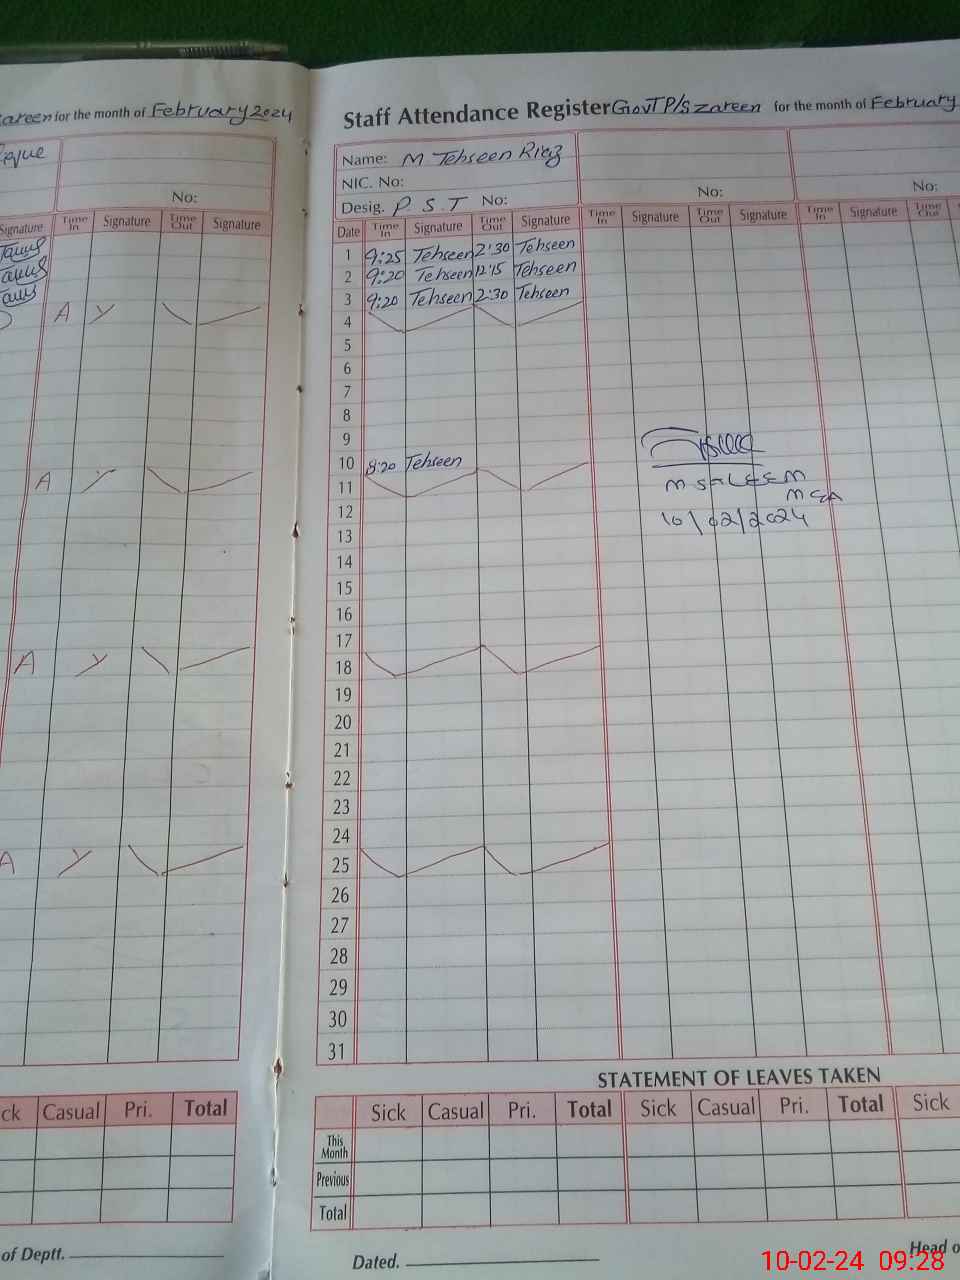 zareen for the month of February 2024
No:
Signature Time In Signature Time Out Signature
A
A
A
A
ck Casual Pri. Total
of Deptt.
Staff Attendance Register Govt P/S zareen for the month of February
Name: M Tehseen Riaz
NIC. No:
Desig. P.S.T No: No: No:
Date Time In Signature Time Out Signature Time In Signature Time Out Signature Time In Signature Time Out Signature
1 9:25 Tehseen 2:30 Tehseen
2 9:20 Tehseen 12:15 Tehseen
3 9:20 Tehseen 2:30 Tehseen
4
5
6
7
8
9
10 8:20 Tehseen
11
M SALEEM
12
MEA
13
10/02/2024
14
15
16
17
18
19
20
21
22
23
24
25
26
27
28
29
30
31
STATEMENT OF LEAVES TAKEN
Sick Casual Pri. Total Sick Casual Pri. Total Sick
This Month
Previous
Total
Dated.
Head o
10-02-24 09:28